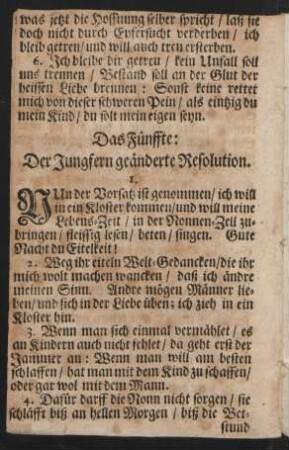 was jetzt die Hoffnung selber spricht / laß sie
doch nicht durch Eyfersucht verderben / ich
bleib getreu / und will auch treu ersterben.
6. Ich bleibe dir getreu / kein Unfall soll
uns trennen / Bestand soll an der Glut der
heissen Liebe brennen : Sonst keine rettet
mich von dieser schweren Pein / als eintzig du
mein Kind / du solt mein eigen seyn.
Das Fünffte:
Der Jungfern geänderte Resolution.
1.
NUn der Vorsatz ist genommen / ich will
in ein Kloster kommen / und will meine
Lebens-Zeit / in der Nonnen-Zell zu-
bringen / fleissig lesen / beten / singen. Gute
Nacht du Eitelkeit !
2. Weg ihr eiteln Welt-Gedancken / die ihr
mich wolt machen wancken / daß ich ändre
meinen Sinn. Andre mögen Männer lie-
ben / und sich in der Liebe üben ; ich zieh in ein
Kloster hin.
3. Wenn man sich einmal vermählet / es
an Kindern auch nicht fehlet / da geht erst der
Jammer an : Wenn man will am besten
schlaffen / hat man mit dem Kind zu schaffen /
oder gar wol mit dem Mann.
4. Dafür darff die Nonn nicht sorgen / sie
schläfft biß an hellen Morgen / biß die Bet-
stund